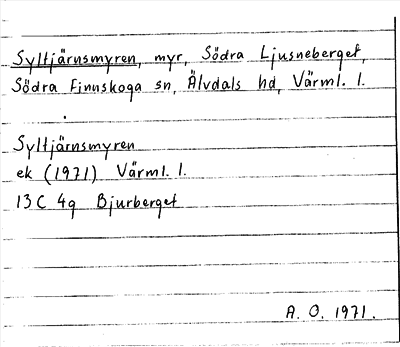 Syltjärnsmyren, myr, Södra Ljusneberget,
Södra Finnskoga sn, Älvdals hd, Värml. l.
Syltjärnsmyren
ek (1971) Värml. l.
13C 4g Bjurberget
A. O. 1971.